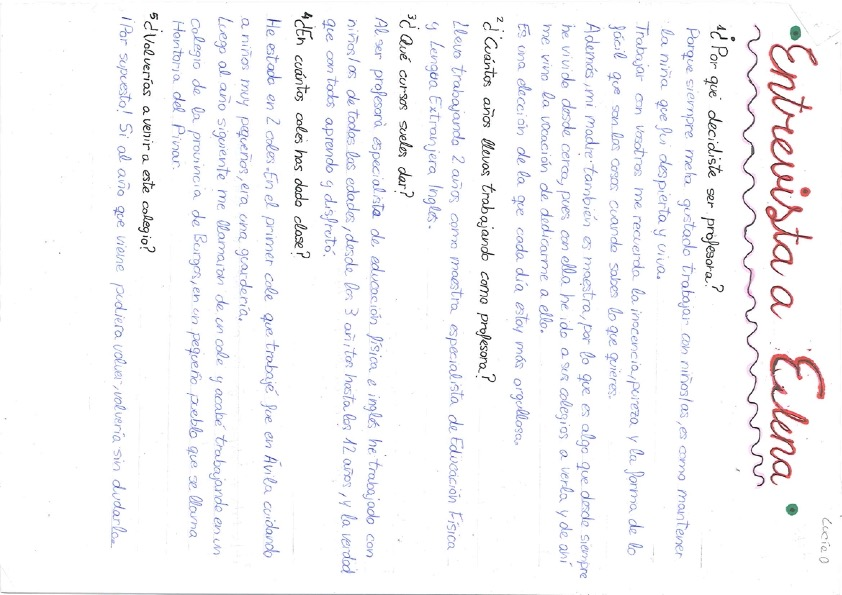 Lucía D
Entrevista a Eulena
1¿Por qué decidiste ser profesora?
Porque siempre me ha gustado trabajar con niños/as, es como mantener
la niña que fui despierta y viva.
Trabajar con vosotros me recuerda la inocencia, pureza y la forma de lo
fácil que son las cosas cuando sabes lo que quieres.
Además, mi madre también es maestra, por lo que es algo que desde siempre
he vivido desde cerca, pues con ella he ido a sus colegios a verla y de ahí
me vino la vocación de dedicarme a ello.
Es una elección de la que cada día estoy más orgullosa.
2¿Cuántos años llevas trabajando como profesora?
Llevo trabajando 2 años como maestra especialista de Educación Física
y Lengua Extranjera Inglés.
3¿Qué cursos sueles dar?
Al ser profesora especialista de educación física e inglés he trabajado con
niños/as de todas las edades, desde los 3 añitos hasta los 12 años, y la verdad
que con todos aprendo y disfruto.
4¿En cuántos coles has dado clase?
He estado en 2 coles. En el primer cole que trabajé fue en Ávila cuidando
a niños muy pequeños, era una guardería.
Luego al año siguiente me llamaron de un cole y acabé trabajando en un
colegio de la provincia de Burgos, en un pequeño pueblo que se llama
Hontoria del Pinar.
5¿Volverías a venir a este colegio?
¡Por supuesto! Si al año que viene pudiera volver, volvería sin dudarlo.